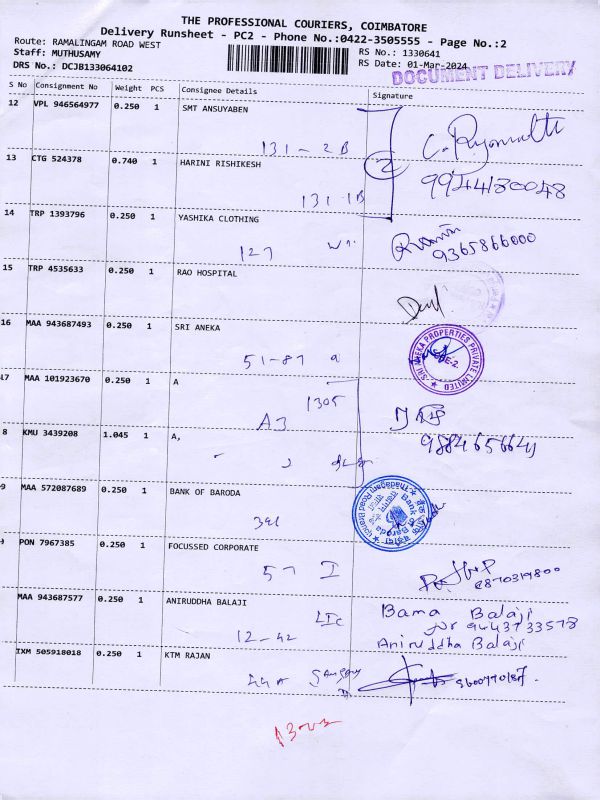 THE PROFESSIONAL COURIERS, COIMBATORE
Delivery Runsheet - PC2 - Phone No.:0422-3505555 - Page No.:2
Route: RAMALINGAM ROAD WEST
Staff: MUTHUSAMY
DRS No.: DCJB133064102
RS No.: 1330641
RS Date: 01-Mar-2024
DOCUMENT DELIVERY
S No Consignment No Weight PCS Consignee Details Signature
12 VPL 946564977 0.250 1 SMT ANSUYABEN
131-2B
13 CTG 524378 0.740 1 HARINI RISHIKESH
2
9944180048
131 1B
14 TRP 1393796 0.250 1 YASHIKA CLOTHING
127
9365866000
15 TRP 4535633 0.250 1 RAO HOSPITAL
16 MAA 943687493 0.250 1 SRI ANEKA
51-87 a
SRI ANEKA PROPERTIES PRIVATE LIMITED
17 MAA 101923670 0.250 1 A
1305
A3
8 KMU 3439208 1.045 1 A,
9 MAA 572087689 0.250 1 BANK OF BARODA
Bank of Baroda
PON 7967385 0.250 1 FOCUSSED CORPORATE
57 I
8870319800
MAA 943687577 0.250 1 ANIRUDDHA BALAJI
LIC
12-42
Bama Balaji
9443733578
Aniruddha Balaji
IXM 505918018 0.250 1 KTM RAJAN